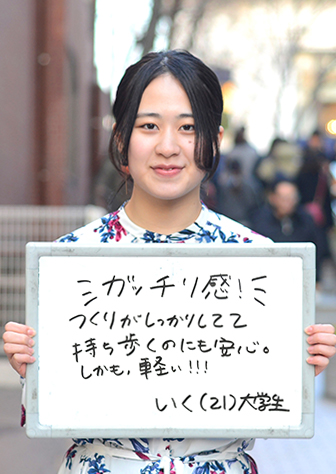 ガッチリ感!
つくりがしっかりしてて
持ち歩くのにも安心。
しかも、軽い!!!
いく(21)大学生